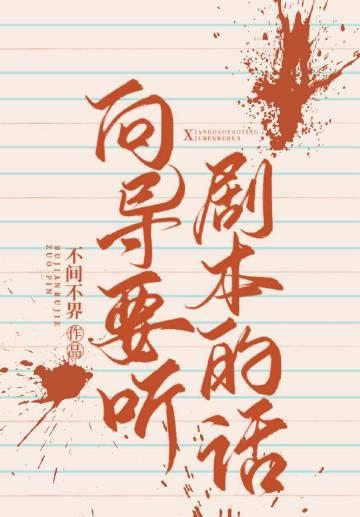 向导要听
剧本的话
XIANGDAOYAOTING
JUBENDEHUA
不间不界
作品
BUJIANBUJIE
ZUO PIN